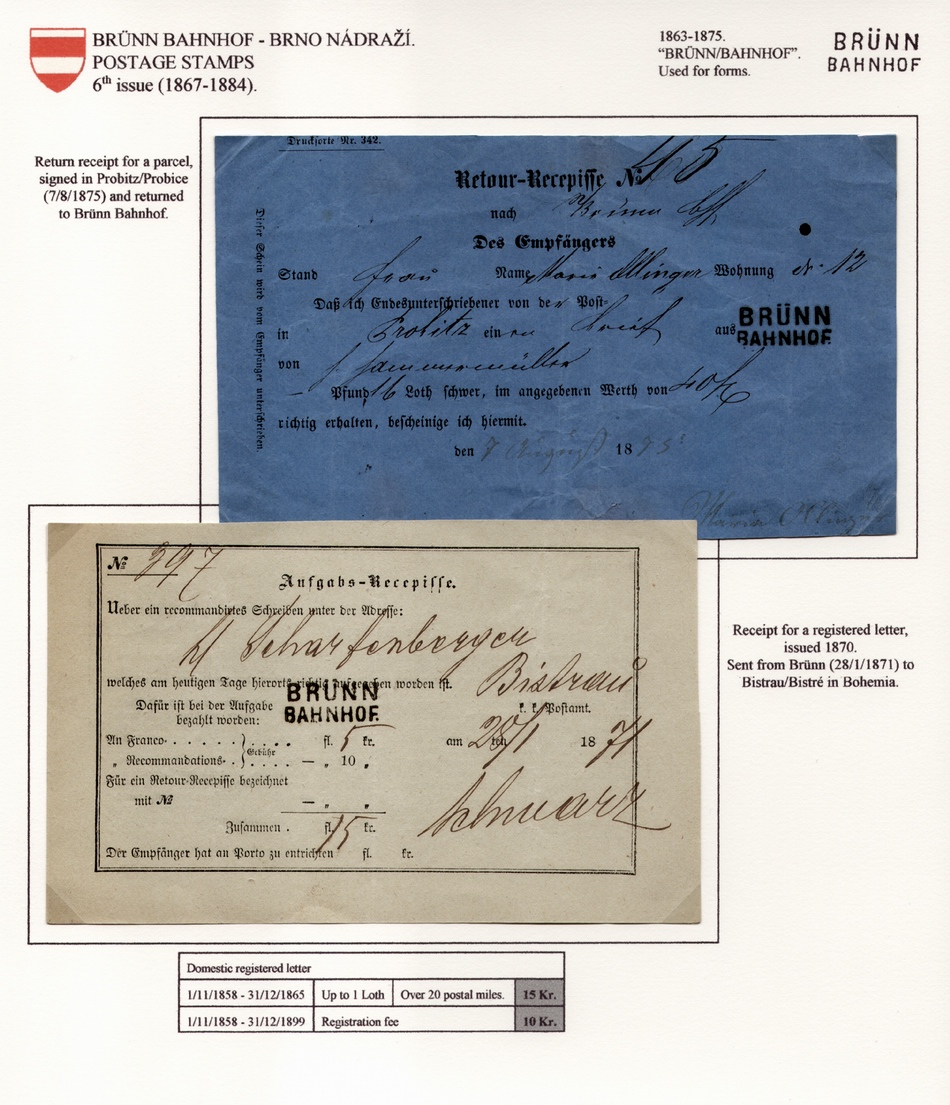 BRÜNN BAHNHOF - BRNO NÁDRAŽÍ.
POSTAGE STAMPS
6th issue (1867-1884).
1863-1875.
“BRÜNN/BAHNHOF”.
Used for forms.
BRÜNN
BAHNHOF
Return receipt for a parcel,
signed in Probitz/Probice
(7/8/1875) and returned
to Brünn Bahnhof.
Drucksorte Nr. 342.
Retour-Recepisse No 45
nach Brünn Bhf
Des Empfängers
Stand Frau Name Marie Wohnung Nr. 12
Daß ich Endesunterschriebener von der Post-
in Probitz einen Brief aus BRÜNN BAHNHOF
von
Pfund 16 Loth schwer, im angegebenen Werth von
richtig erhalten, bescheinige ich hiermit.
den 7 August 1875
Dieser Schein wird vom Empfänger unterschrieben.
No 397
Aufgabs-Recepisse.
Ueber ein recommandirtes Schreiben unter der Adresse:
Scharfenberger
welches am heutigen Tage hierorts richtig aufgegeben worden ist.
Bistrau
BRÜNN
BAHNHOF
Dafür ist bei der Aufgabe
bezahlt worden:
k. k. Postamt.
An Franco . . . . . . fl. 5 kr.
am 28ten/1 1871
„ Recommandations- . Gebühr . . . . — „ 10 „
Für ein Retour-Recepisse bezeichnet
mit No — „ „
Zusammen . fl. 15 kr.
Schwarz
Der Empfänger hat an Porto zu entrichten fl. kr.
Receipt for a registered letter,
issued 1870.
Sent from Brünn (28/1/1871) to
Bistrau/Bistré in Bohemia.
Domestic registered letter
1/11/1858 - 31/12/1865 Up to 1 Loth Over 20 postal miles. 15 Kr.
1/11/1858 - 31/12/1899 Registration fee 10 Kr.